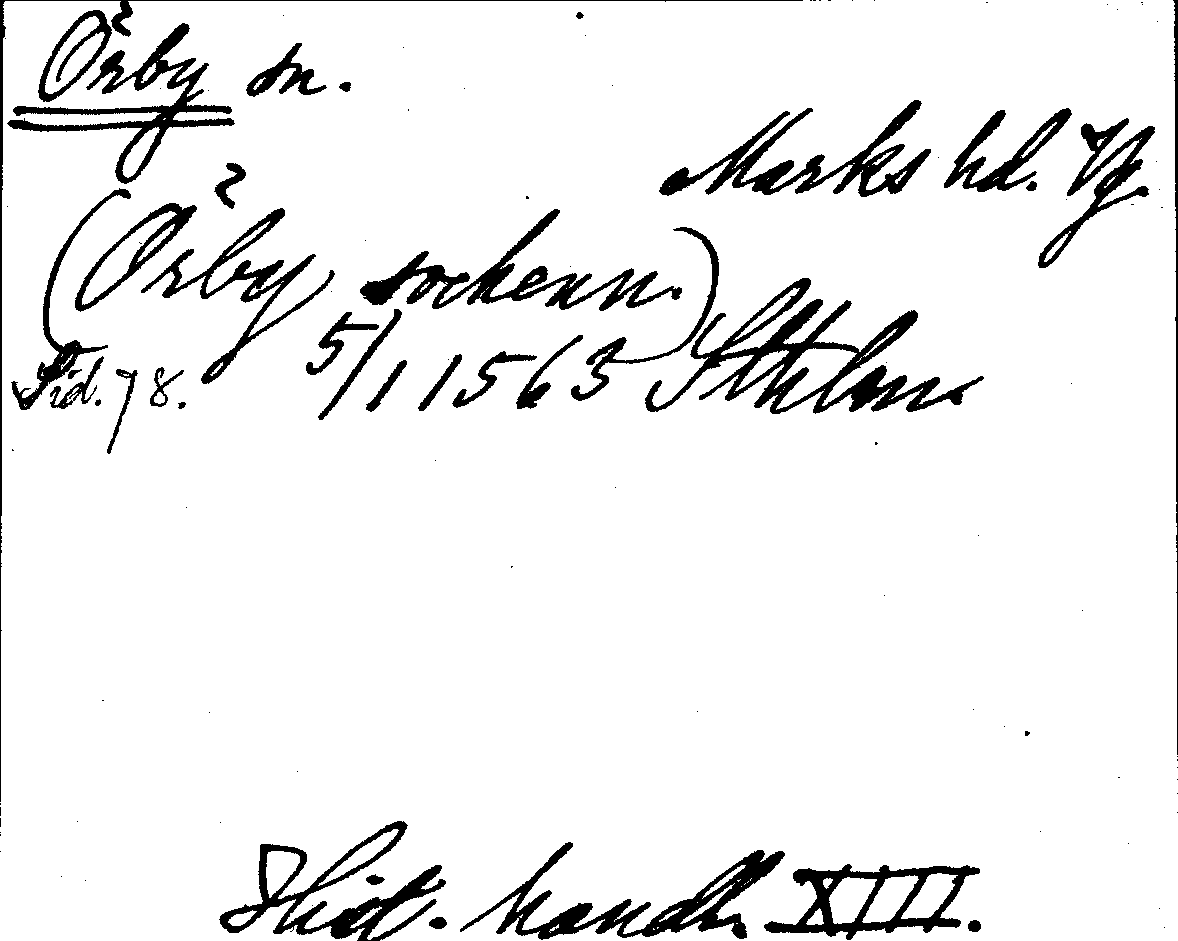 Örby sn.
Marks hd. Vg.
(Örby, sockenn.)
Sid. 78. 5/1 1563 Sthlm.
Hist. handl. XIII.